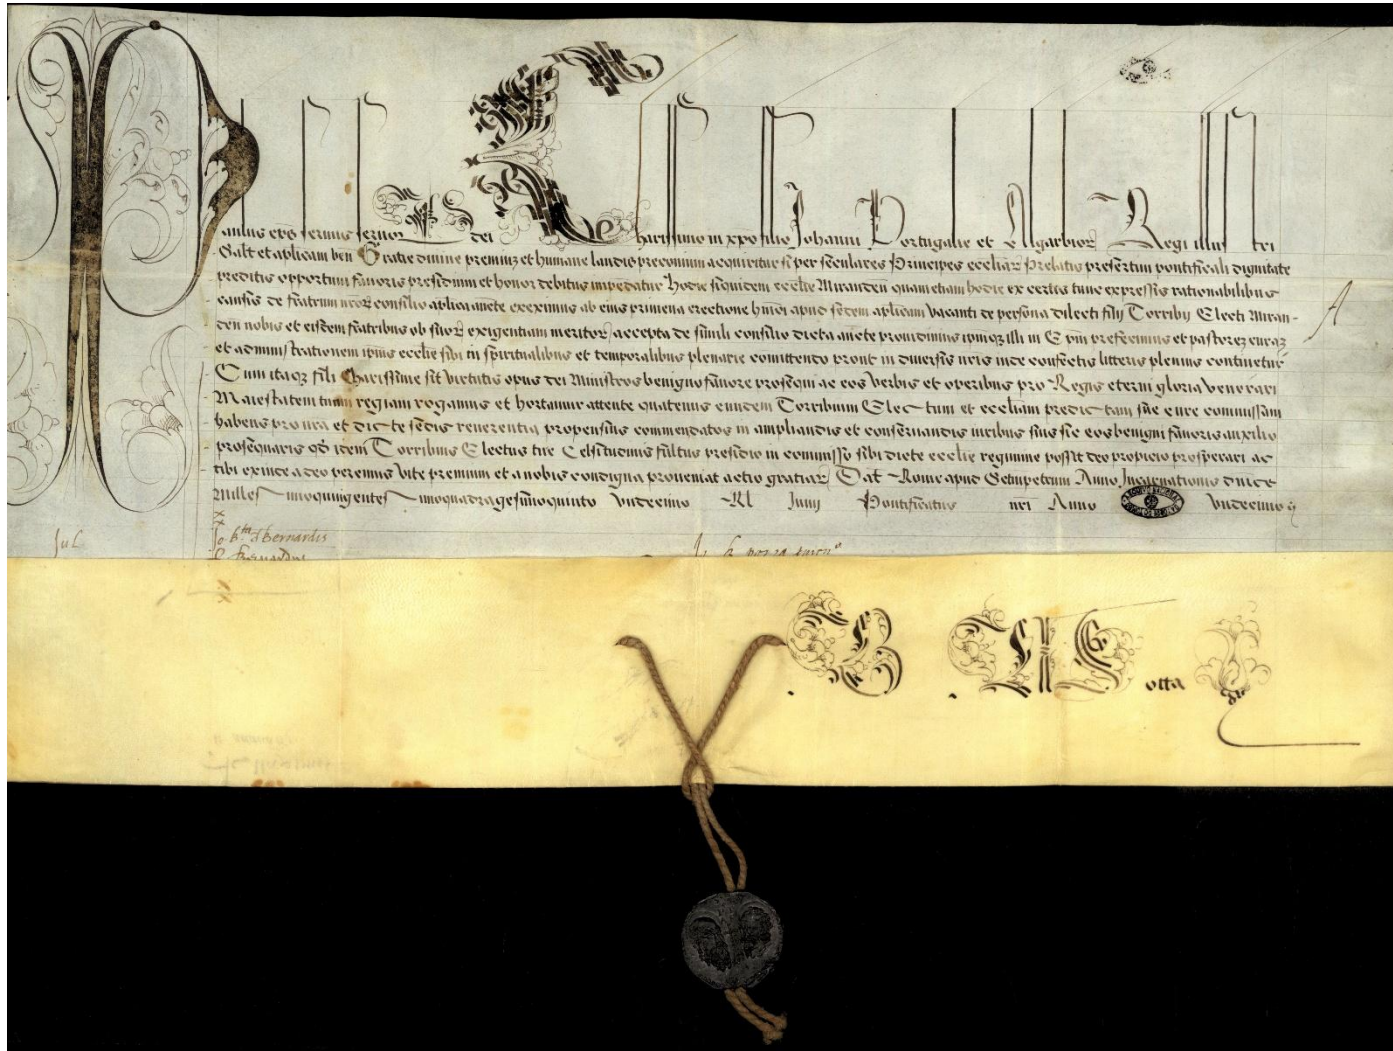 Paulus eps servus servor dei Charissimo in xpo filio Johanni Portugalie et Algarbior Regi illustri
Salt et aplicam ben Gratie divine premium et humane laudis preconium acquiritur si per seculares Principes ecclīar Prelatis presertim pontificali dignitate
preditis opportuni favoris presidium et honor debitus impedatur Hodie siquidem ecclie Miranden quam etiam hodie ex certis tunc expressis rationabilibus
causis de fratrum nror consilio aplica aucte exeximus ab eius primeva erectione huiusmodi apud sedem aplicam vacanti de persona dilecti filij Torribij Electi Miran-
den nobis et eisdem fratribus ob suor exigentiam meritor accepta de simili consilio dicta aucte providimus ipmq illi in Epm preficimus et pastorem curaz
et administrationem ipius ecclie sibi in spiritualibus et temporalibus plenarie comittendo prout in diversis nris inde confectis litteris plenius continetur
Cum itaqz fili Charissime sit virtutis opus dei Ministros benigno favore prosequi ac eos verbis et operibus pro Regis eterni gloria venerari
Maiestatem tuam regiam rogamus et hortamur attente quatenus eundem Torribium Electum et eccliam predictam sue cure commissam
habens pro nra et dicte sedis reverentia propensius commendatos in ampliandis et conservandis iuribus suis sic eos benigni favoris auxilio
prosequaris qd idem Torribius Electus tue Celsitudinis fultus presidio in commisso sibi dicte ecclie regimine possit deo propicio prosperari ac
tibi exinde a deo perennis vite premium et a nobis condigna proveniat actio gratiar Dat Rome apud Sctumpetrum Anno Incarnationis dnice
Millesimoquingentesimoquadragesimoquinto Undecimo Kl Junij Pontificatus nri Anno Undecimo
A
Jul
Jo bta d Bernardis
B
otta